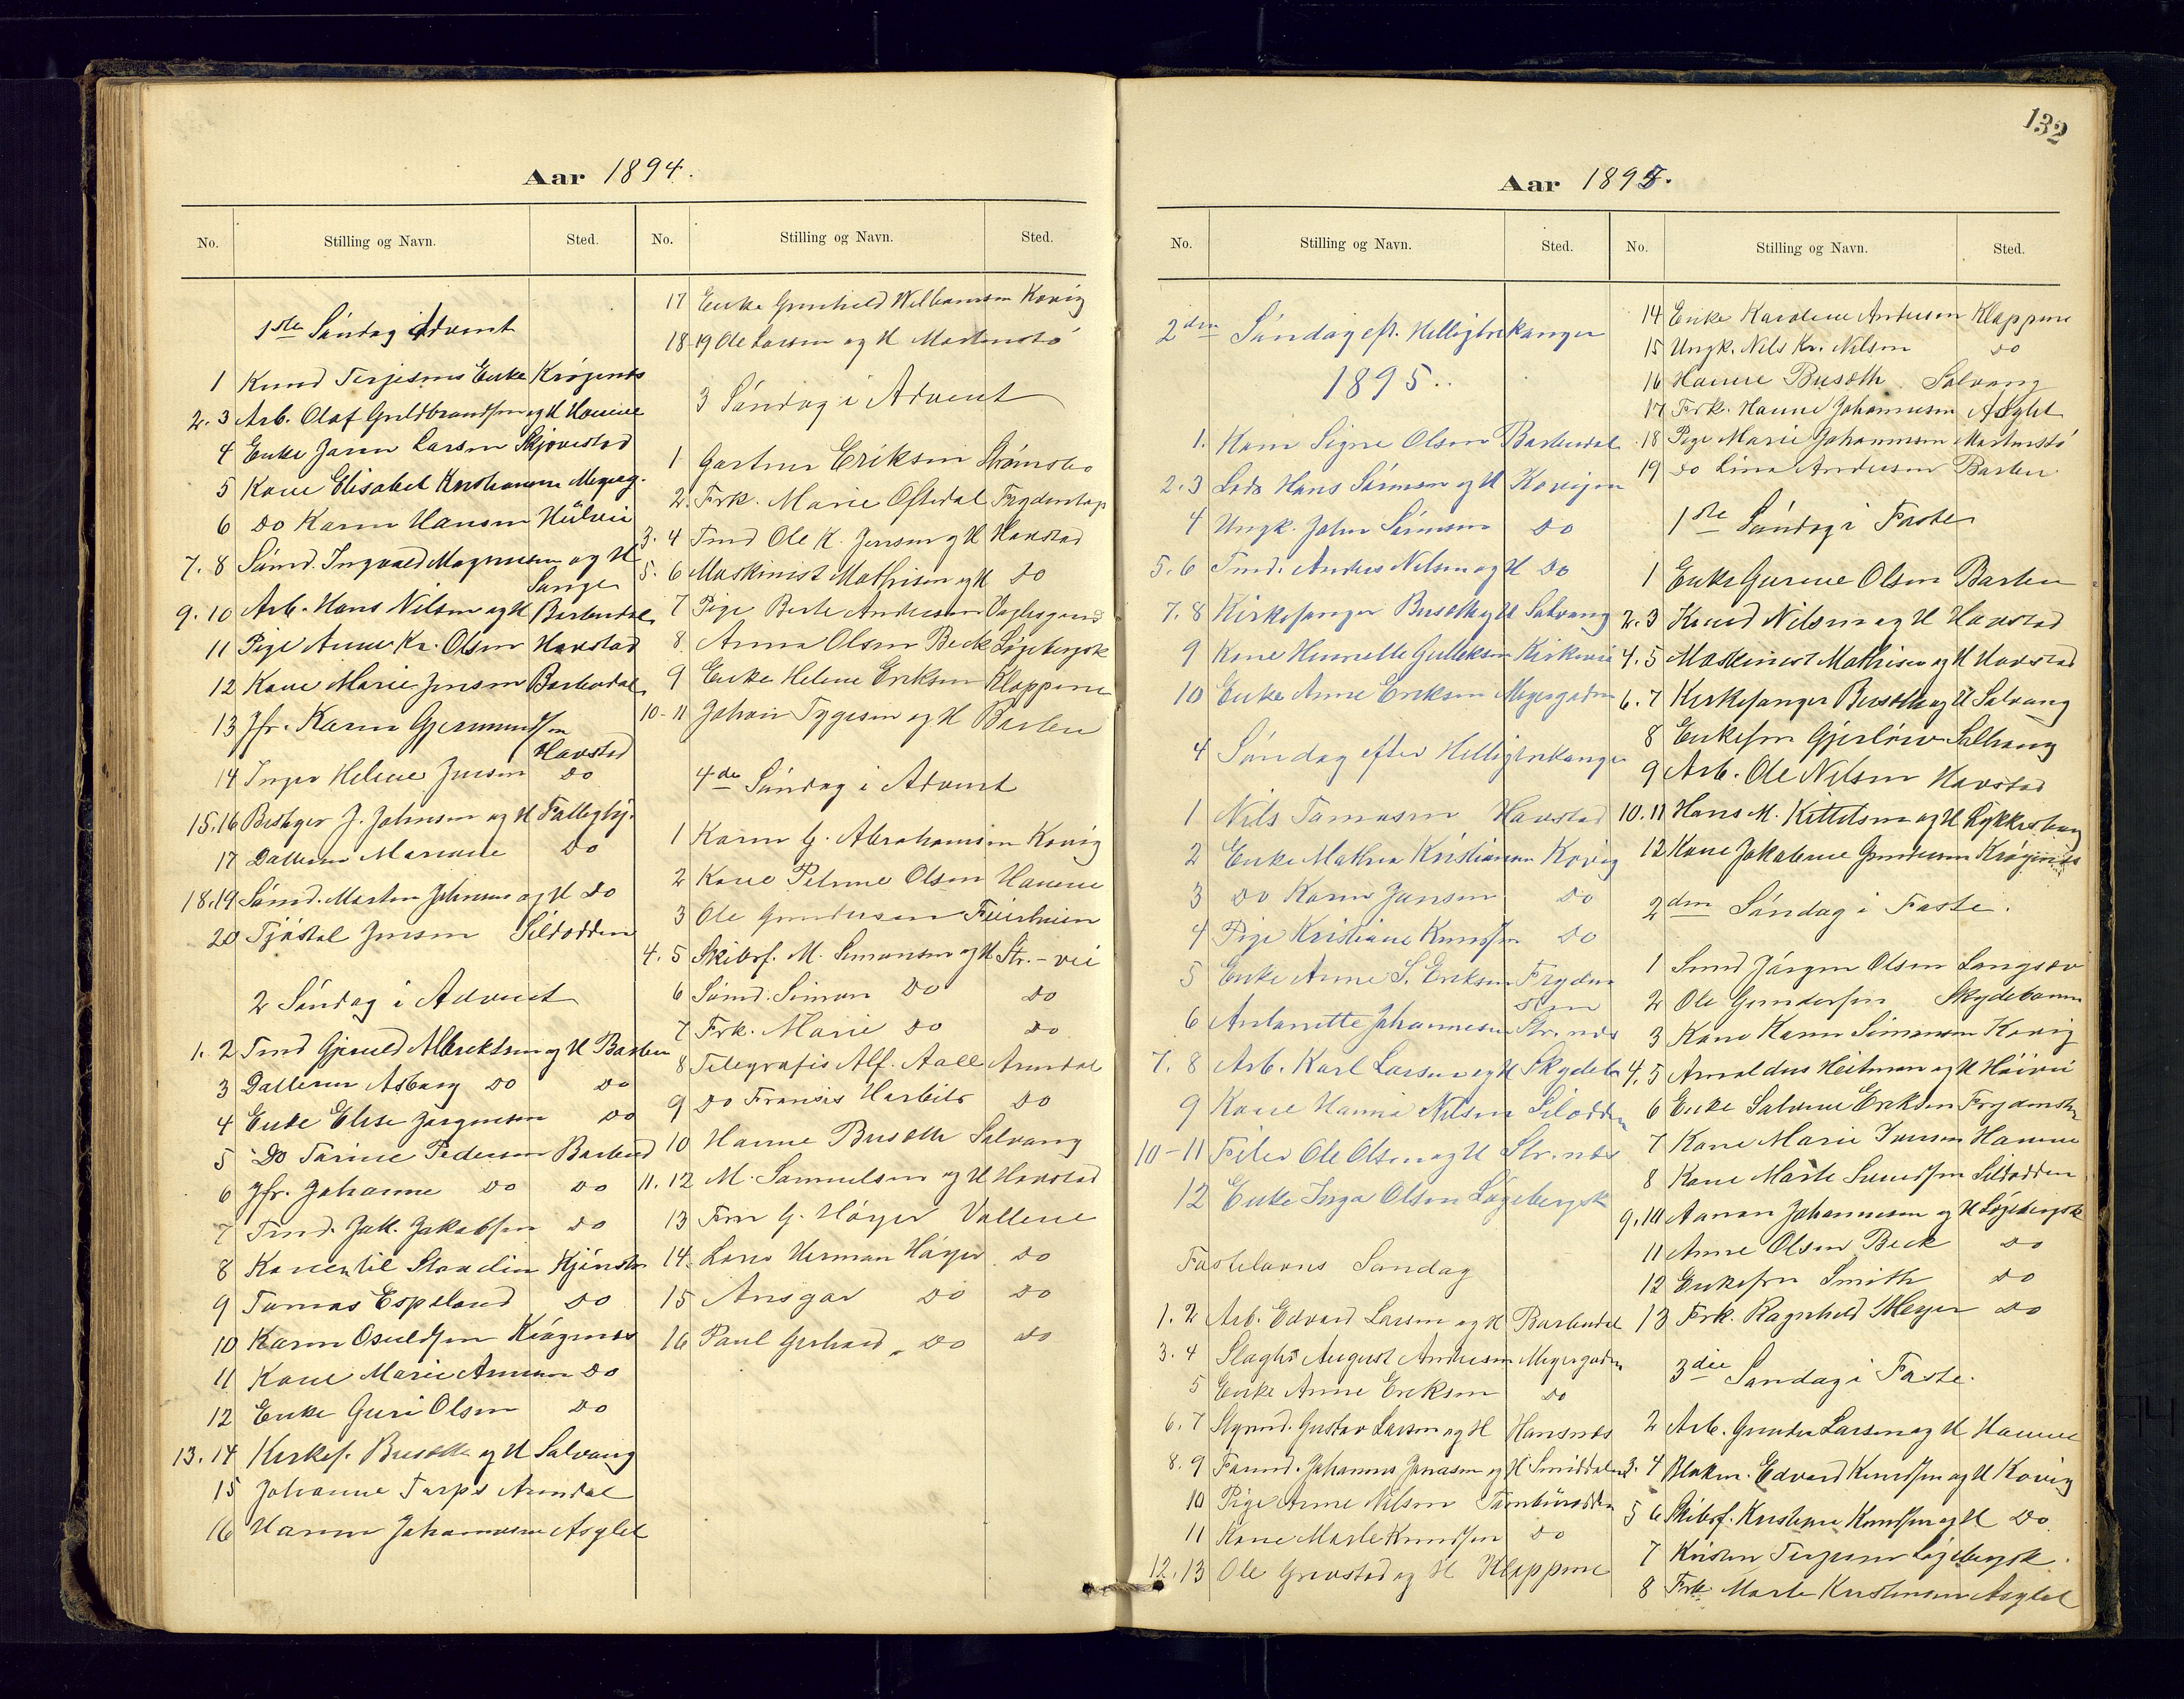 132
Aar 1894.
No. Stilling og Navn. Sted.
1ste Søndag i Advent
1 Knud Terjesens Enke Krøgenes
2. 3 Arb. Olaf Guldbrandsen og H Havene
4 Enke Jaren Larsen Skjovestad
5 Kone Elisabet Kristiansen Meyerg.
6 Do Karen Hansen
7. 8 Sømd. Ingvald Magnussen og H
Songe
9. 10 Arb. Hans Nilsen og H Barbudal
11 Pige Anne Kr. Olsen Havstad
12 Kone Marie Jensen Barbudal
13 Jfr. Karen Gjermundsen
Havstad
14 Inger Helene Jensen Do
15. 16 Bestyrer J. Johnsen og H Fattighj.
17 Datteren Mariane Do
18. 19 Sømd. Morten Johnsen og H Do
20 Tjøstel Jensen Sildodden
2 Søndag i Advent
1. 2 Tmd Gjeruld Albrektsen og H Barbu
3 Datteren Asborg Do Do
4 Enke Elise Jørgensen Do
5 Do Tarine Pedersen Barbud
6 Jfr. Johanne Do Do
7 Tmd. Jak. Jakobsen Do
8 Kone
9 Tomas Espeland Do
10 Karen Osuldsen Krøgenes
11 Kone Marie Do
12 Enke Guri Olsen Do
13. 14 Kirkes. Busæth og H Solvang
15 Johanne Torps Arendal
16 Hanne Johannesen Asylet
No. Stilling og Navn. Sted.
17 Enke Gunhild Kovig
18-19 Ole Larsen og H
3 Søndag i Advent
1 Gartner Eriksen Strømsbo
2. Frk. Marie Oftedal
3. 4 Tmd Ole K. Jensen og H Havstad
5. 6 Maskinist Mathisen og H Do
7 Pige Berte Andersen
8 Anna Olsen Beck Løgebergsk
9 Enke Helene Eriksen Kloppene
10-11 Johan Tygesen og H Barbu
4de Søndag i Advent
1 Karen G. Abrahamsen Kovig
2 Kone Petrine Olsen Havene
3 Ole Gundersen
4. 5 Skibsf. M. Simonsen og H Str.-vei
6 Sømd. Simon Do Do
7 Frk. Marie Do Do
8 Telegrafis Alf. Aall Arendal
9 Do Fransis Harbits Do
10 Hanne Busæth Solvang
11. 12 M. Samuelsen og H Havstad
13 Fru G. Høyer Vollene
14 Herman Høyer Do
15 Ansgar Do Do
16 Paul Gerhard Do Do
Aar 1895.
No. Stilling og Navn. Sted.
2den Søndag eft. Helligtrekonger
1895.
1. Signe Olsen Barbudal
2. 3 Lods Hans Sørensen og H Kovigen
4 Ungk. John Sørensen Do
5. 6 Tmd. Anders Nilsen og H Do
7. 8 Kirkesanger Busæth og H Solvang
9 Kone Henriette Gulliksen Kirkevei
10 Enke Anne Eriksen Meyergaden
4 Søndag efter Helligtrekonger
1 Nils Tomasen Havstad
2 Enke Mathea Kristiansen Kovig
3 Do Karen Jansen Do
4 Pige Kristiane Knudsen Do
5 Enke Anne S. Eriksen Fryden
6 Antonette Johannesen Str.nes
7. 8 Arb. Karl Larsen og H Skydeb
9 Kone Hanna Nilsen Silodden
10-11 Feier Ole Olsen og H Str.nes
12 Enke Inga Olsen Løgebergsk
Fastelavns Søndag
1. 2 Arb. Edvard Larsen og H Barbudal
3. 4 Slagter August Andersen Meyergaden
5 Enke Anne Eriksen Do
6. 7 Styrmd. Gustav Larsen og H Hansnes
8. 9 Johannes Jonasen og H Smiddalen
10 Pige Anne Nilsen
11 Kone Marte Knudsen Do
12. 13 Ole Grevstad og H Kloppene
No. Stilling og Navn. Sted.
14 Enke Karolene Andersen Kloppene
15 Ungk. Nils Kr. Nilsen Do
16 Hanne Busæth Solvang
17 Frk. Hanne Johannesen Asylet
18 Pige Marie Johannesen
19 Do Lina Andersen Barbu
1ste Søndag i Faste
1 Enke Gurine Olsen Barbu
2. 3 Knud Nilsen og H Havstad
4. 5 Maskinist Mathisen og H Havstad
6. 7 Kirkesanger Busæth og H Solvang
8 Enkefru Gjerløw Solhaug
9 Arb. Ole Nilsen Havstad
10. 11 Hans M. Kittelsen og H Lykkeshaug
12 Kone Jakobine Gundersen Krøgenes
2den Søndag i Faste.
1 Smed Jørgen Olsen Langsæv
2 Ole Gundersen Skydebanen
3 Kone Karen Simonsen Kovig
4. 5 Arnoldus Heitman og H Høivei
6 Enke Salvine Eriksen Frydenst
7 Kone Marie Iversen Havene
8 Kone Marte Svendsen Sildodden
9. 10 Aanon Johannesen og H Løgebergsk
11 Anne Olsen Beck Do
12 Enkefru Smith Do
13 Frk. Ragnhild Meyer Do
3die Søndag i Faste.
2 Arb. Gunder Larsen og H Havene
3. 4 Edvard Knudsen og H Kovig
5 6 Skibsf. Kristian Knudsen og H Do
7 Kristen Terjesen Løgebergsk.
8 Frk. Marte Kristensen Asylet